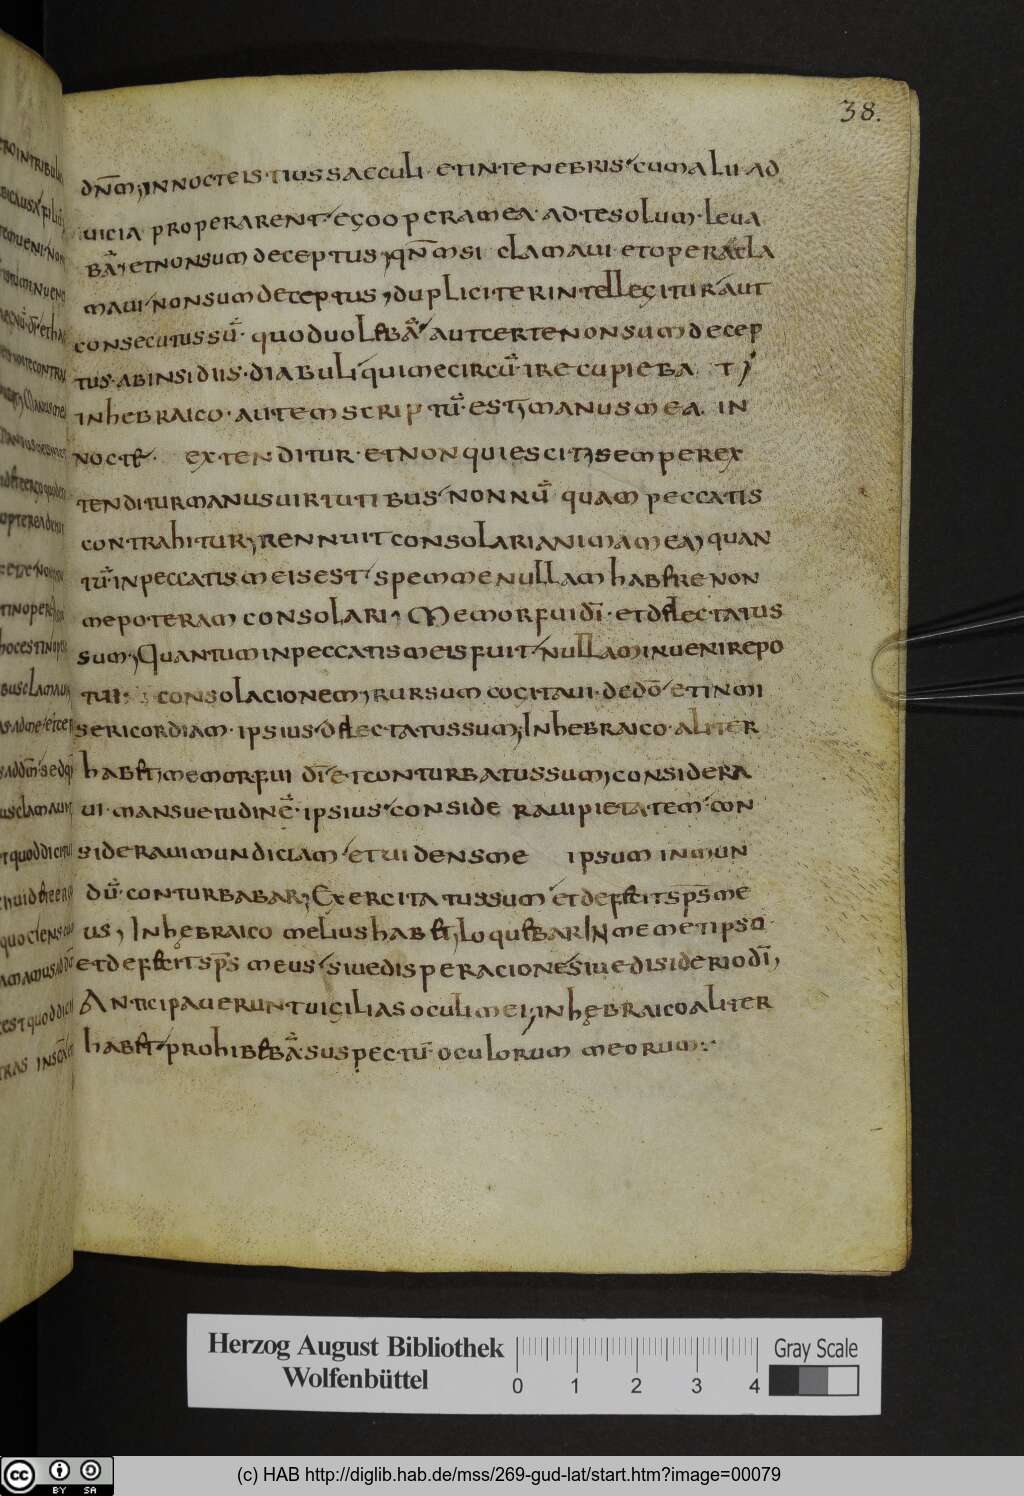 38.
dn̄m, In nocte is tius saeculi · et in tenebris cum alii ad
uicia properarent ego opera mea ad te solum leua
bā, et non sum deceptus, qn̄m si clamaui et opera cla
maui non sum deceptus, dupliciter intellegitur aut
consecutus sū · quod uolebā aut certe non sum decep
tus · ab insidiis · diabuli qui me circū ire cupiebat
in hebraico · autem scriptū est, manus mea · in
nocte · extenditur · et non quiescit, semper ex
tenditur manus uirtutibus non nū quam peccatis
contrahitur, rennuit consolari anima mea, quan
tū in peccatis meis est spem me nullam habere non
me poteram consolari, Memor fui dī · et delectatus
sum, Quantum in peccatis meis fuit nullam inueni repo
tui consolacionem, rursum cogitaui · de dō et in mi
sericordiam · ipsius delectatus sum, In hebraico aliter
habet, memor fui dī et conturbatus sum, considera
ui mansuetudinē · ipsius conside raui pietatem con
sideraui mundiciam et uidens me ipsum in mun
dū · conturbabar, Exercitatus sum et defecit sp̄s me
us, In hębraico melius habet, loquebar In memet ipso
et defecit sp̄s meus siue disperacione siue disiderio dī,
Anticipauerunt uigilias oculi mei, in hębraico aliter
habet prohibebā suspectū oculorum meorum
Herzog August Bibliothek
Wolfenbüttel
0 1 2 3 4
Gray Scale
cc BY SA
(c) HAB http://diglib.hab.de/mss/269-gud-lat/start.htm?image=00079